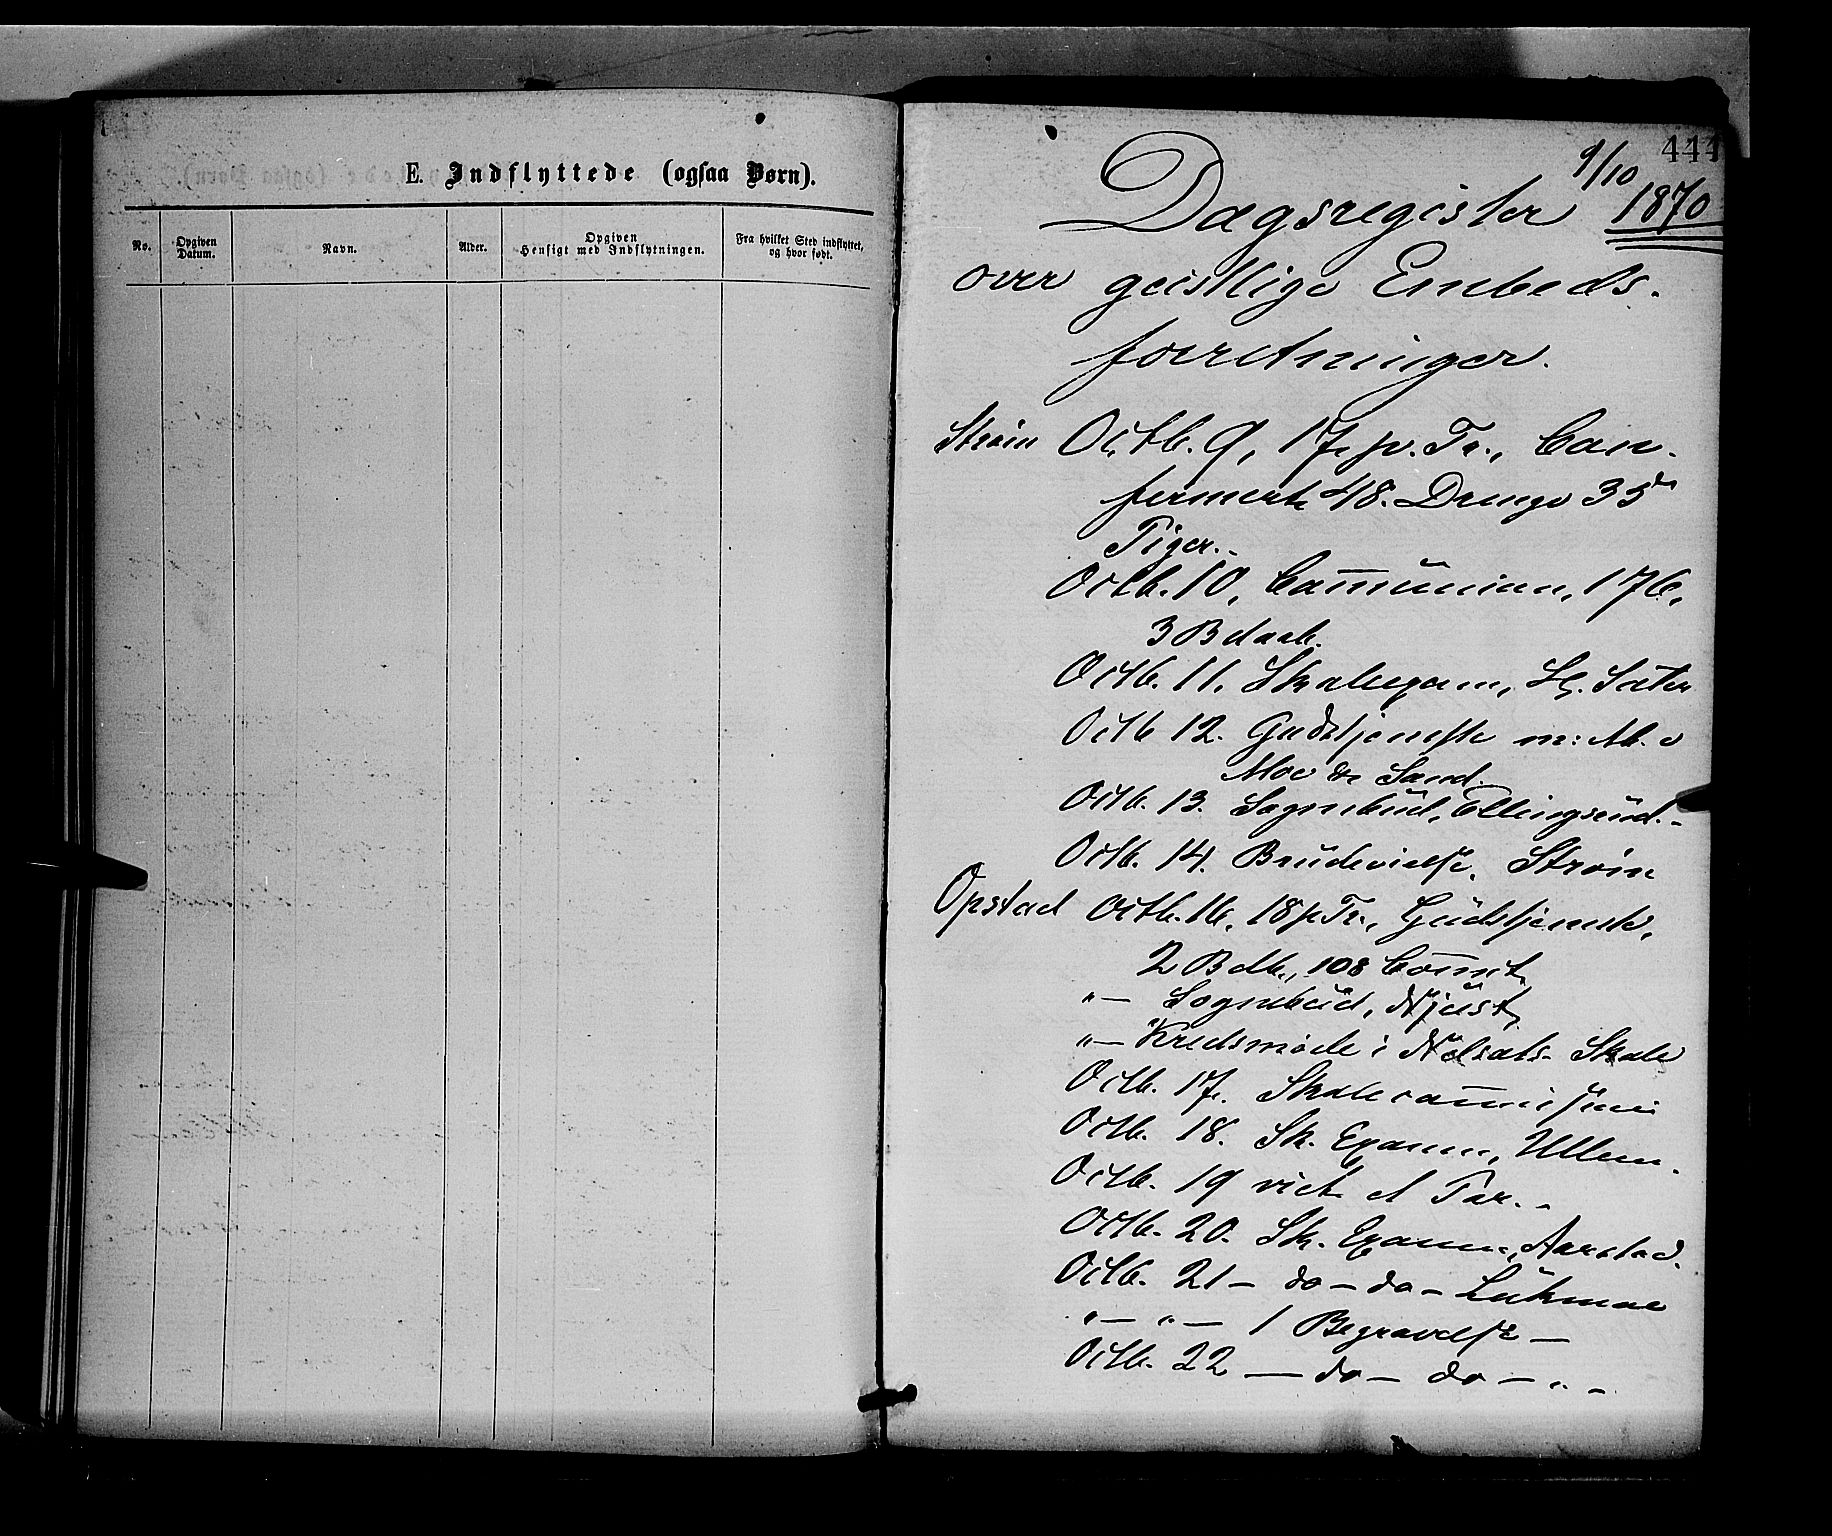 E. Indflyttede (ogsaa Børn).
No.
Opgiven
Datum.
Navn.
Alder.
Opgiven
Hensigt med Indflytningen.
Fra hvilket Sted indflyttet,
og hvor født.
444
9/10
Dagsregister 1870
over geistlige Embeds-
forretninger.
Strøm Octb. 9, 17. p. Tr., Con-
firmert 48. Drenge 35
Piger.-
Octb. 10, Com̄union, 176,
3 B daab.
Octb. 11. Skoleexam, Sæter
Octb 12. Gudstjeneste m: Ab. i
Moe & Sand.
Octb. 13. Sognebud, Ellingsrud.-
Octb. 14. Brudevielse, Strøm
Opstad Octb. 16, 18 p Tr., Gudstjeneste,
2 B db., 108 Com̄t.
"— Sognebud, Njust,
"— Kredsmøde i Skole
Octb. 17. Skolecom̄ission
Octb. 18. Sk. Exam., Ullern.
Octb. 19 viet et Par.-
Octb. 20. Sk. Exam., Aarstad.
Octb. 21 — do — do — Lükmoe
"— "— 1 Begravelse —
Octb. 22 — do — do — " -